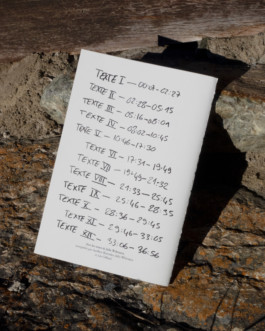 TEXTE I — 00:00-02:27
TEXTE II — 02:28-05:15
TEXTE III — 05:16-08:01
TEXTE IV — 08:02-10:45
TEXTE V — 10:46-17:30
TEXTE VI — 17:31-19:49
TEXTE VII — 19:49-21:32
TEXTE VIII — 21:33-25:45
TEXTE IX — 25:46-28:35
TEXTE X — 28:36-29:45
TEXTE XI — 29:46-33:05
TEXTE XII — 33:06-36:56